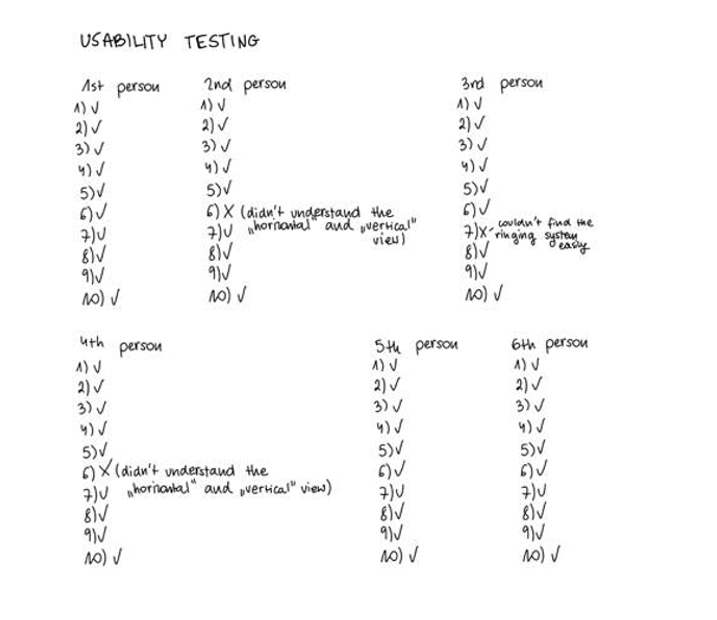 USABILITY TESTING
1st person
1) ✓
2) ✓
3) ✓
4) ✓
5) ✓
6) ✓
7) ✓
8) ✓
9) ✓
10) ✓
2nd person
1) ✓
2) ✓
3) ✓
4) ✓
5) ✓
6) X (didn't understand the
7) ✓ „horizontal" and „vertical"
view)
8) ✓
9) ✓
10) ✓
3rd person
1) ✓
2) ✓
3) ✓
4) ✓
5) ✓
6) ✓
7) X - couldn't find the
ringing system
easily
8) ✓
9) ✓
10) ✓
4th person
1) ✓
2) ✓
3) ✓
4) ✓
5) ✓
6) X (didn't understand the
7) ✓ „horizontal" and „vertical" view)
8) ✓
9) ✓
10) ✓
5th person
1) ✓
2) ✓
3) ✓
4) ✓
5) ✓
6) ✓
7) ✓
8) ✓
9) ✓
10) ✓
6th person
1) ✓
2) ✓
3) ✓
4) ✓
5) ✓
6) ✓
7) ✓
8) ✓
9) ✓
10) ✓